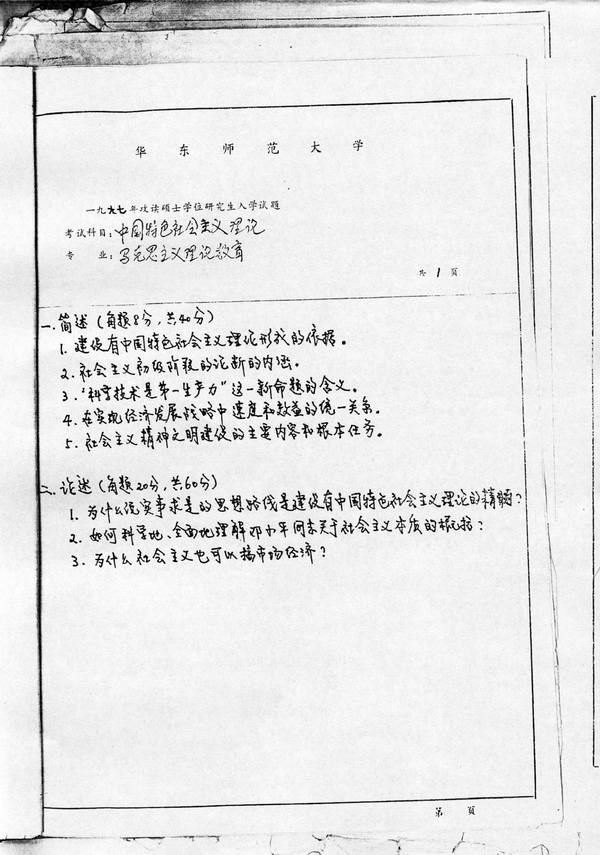 华东师范大学
一九九七年攻读硕士学位研究生入学试题
考试科目：中国特色社会主义理论
专 业：马克思主义理论教育
共 1 页
一. 简述（每题8分，共40分）
1. 建设有中国特色社会主义理论形成的依据。
2. 社会主义初级阶段的论断的内涵。
3. "科学技术是第一生产力"这一新命题的含义。
4. 在实现经济发展战略中速度和效益的统一关系。
5. 社会主义精神文明建设的主要内容和根本任务。
二. 论述（每题20分，共60分）
1. 为什么说实事求是的思想路线是建设有中国特色社会主义理论的精髓？
2. 如何科学地、全面地理解邓小平同志关于社会主义本质的概括？
3. 为什么社会主义也可以搞市场经济？
第 页